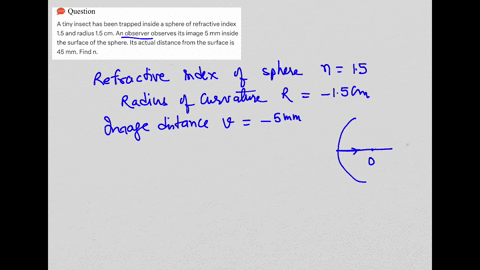 Question
A tiny insect has been trapped inside a sphere of refractive index
1.5 and radius 1.5 cm. An observer observes its image 5 mm inside
the surface of the sphere. Its actual distance from the surface is
45 mm. Find n.
Refractive index of sphere η = 1.5
Radius of curvature R = -1.5cm
Image distance v = -5mm
O